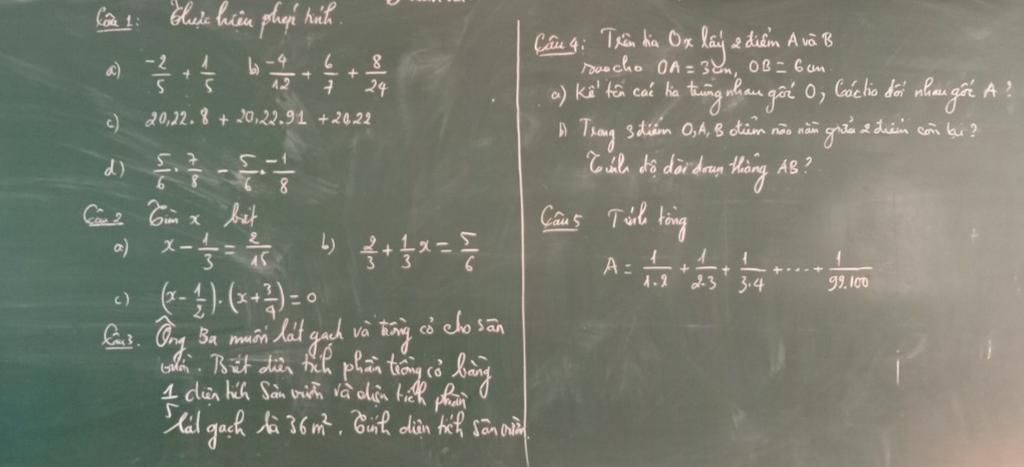 Câu 1: Thực hiện phép tính.
a) -2/5 + 1/5 b) -4/12 + 6/7 + 8/24
c) 20,22.8 + 20,22.91 + 20,22
d) 5/6 . 7/8 - 5/6 . -1/8
Câu 2 Tìm x biết
a) x - 1/3 = 2/15 b) 2/3 + 1/3 x = 5/6
c) (x - 1/2) . (x + 3/4) = 0
Câu 3. Ông Ba muốn lát gạch và trồng cỏ cho sân
vườn. Biết diện tích phần trồng cỏ bằng
1/5 diện tích sân vườn và diện tích phần
lát gạch là 36m². Tính diện tích sân vườn.
Câu 4: Trên tia Ox lấy 2 điểm A và B
sao cho OA = 3cm, OB = 6cm
a) Kể tên các tia trùng nhau gốc O, các tia đối nhau gốc A?
b) Trong 3 điểm O, A, B điểm nào nằm giữa 2 điểm còn lại?
Tính độ dài đoạn thẳng AB?
Câu 5 Tính tổng
A = 1/1.2 + 1/2.3 + 1/3.4 + .... + 1/99.100